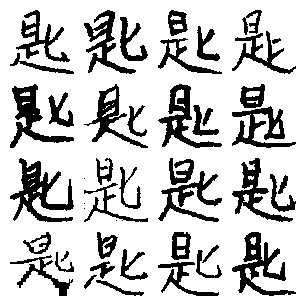 匙匙匙匙
匙匙匙匙
匙匙匙匙
匙匙匙匙